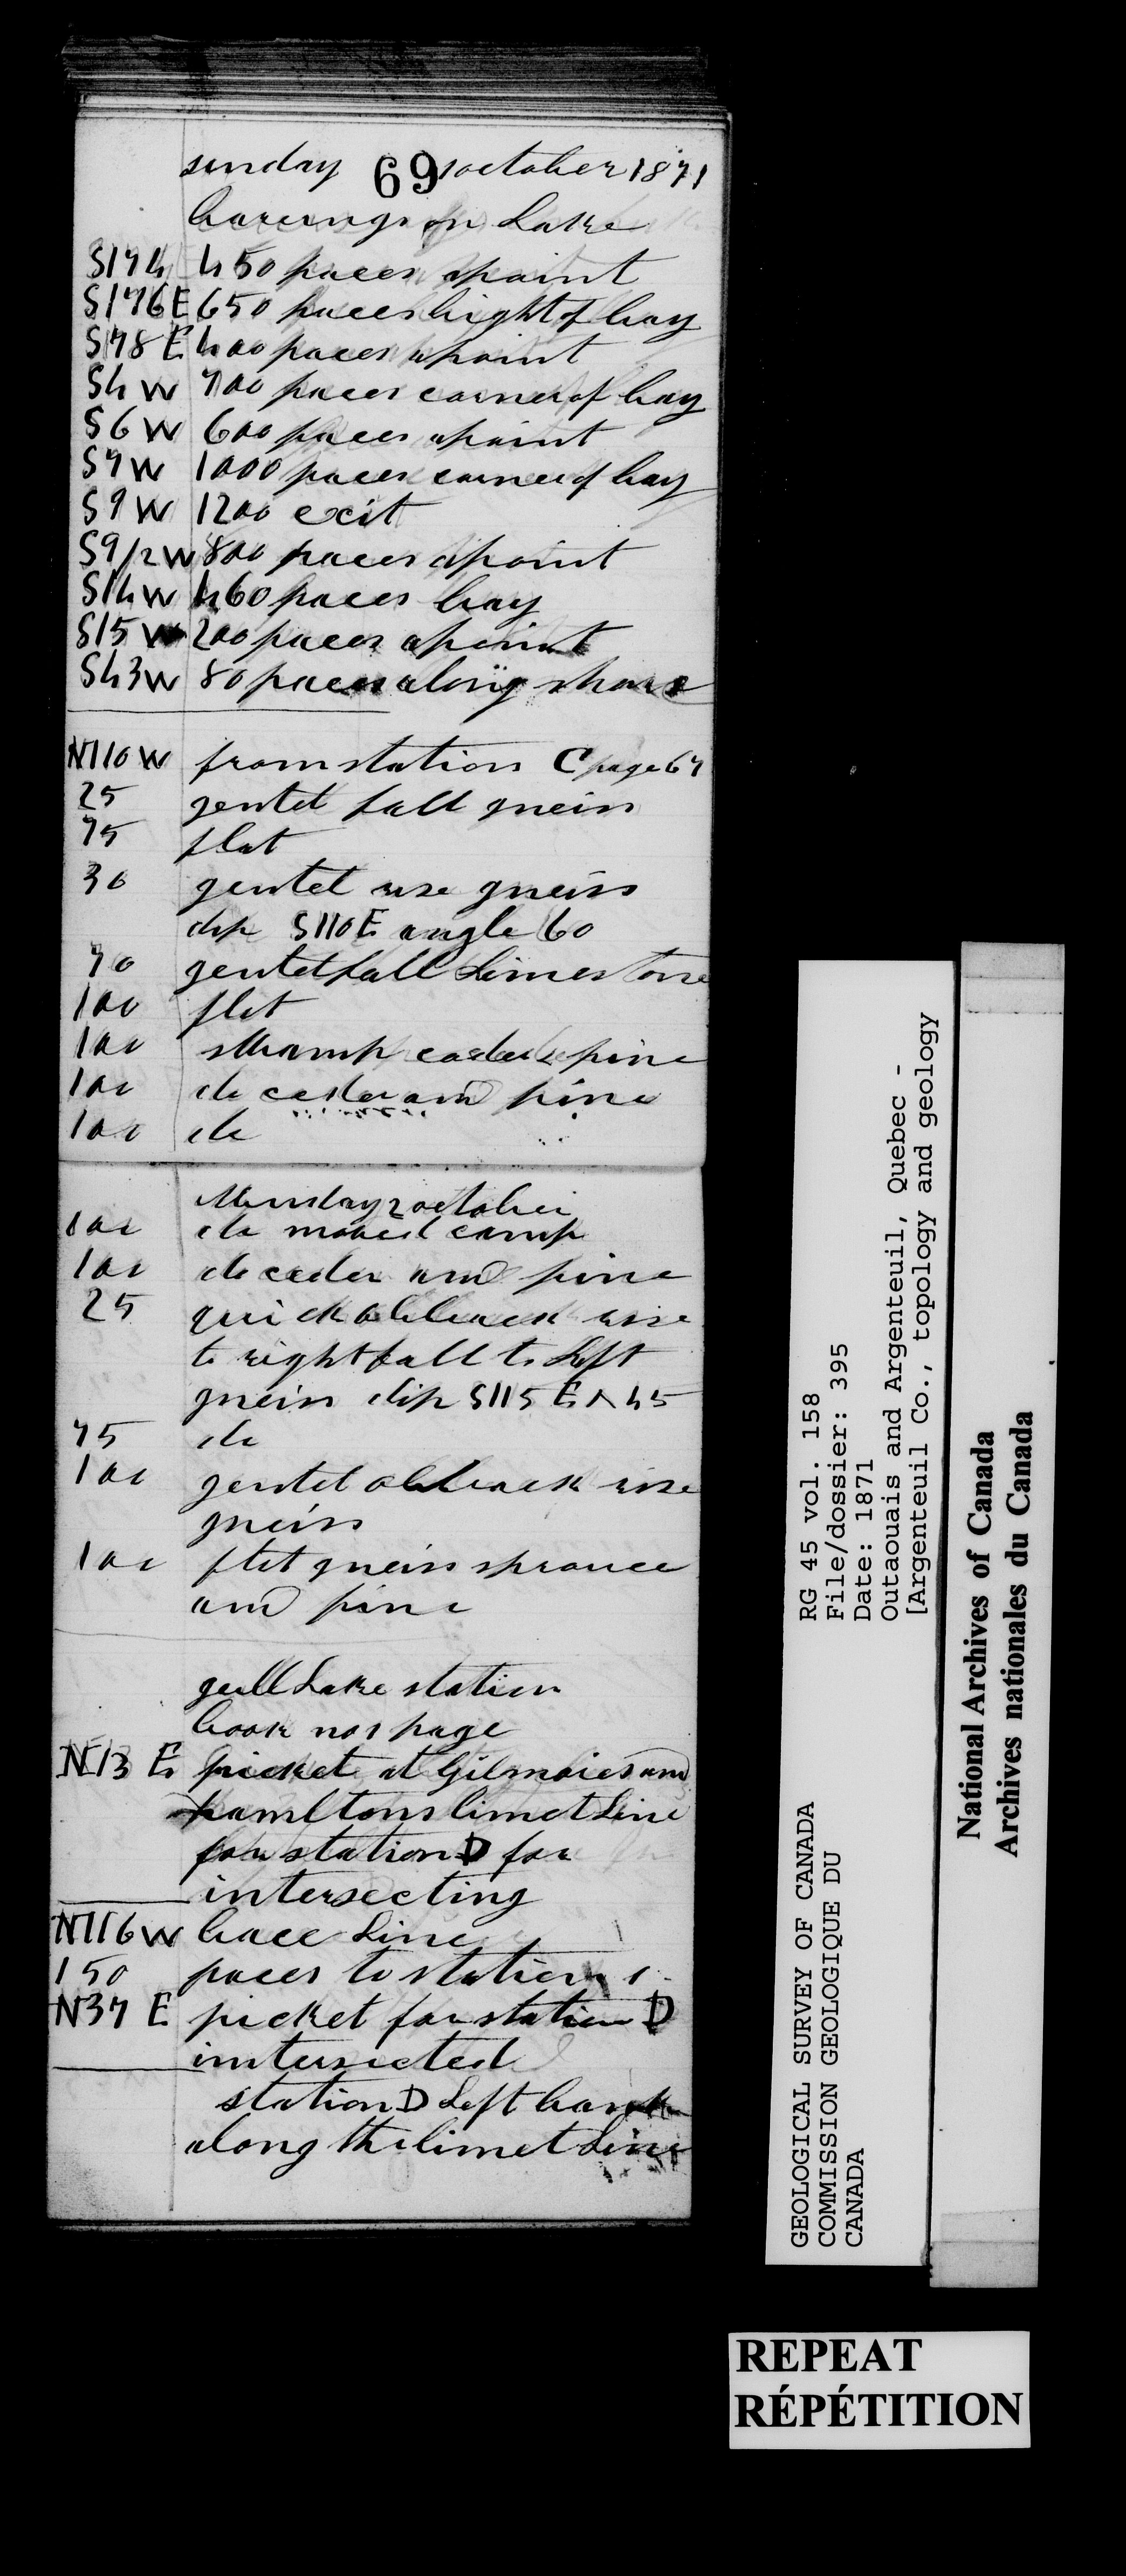 sunday 69 1 october 1871
bareings on Lake
S174 450 paces apoint
S176E 650 paces bight of bay
S78E 400 paces apoint
S4W 700 paces corner of bay
S6W 600 paces apoint
S7W 1000 paces corner of bay
S9W 1200 exit
S9/2W 800 paces apoint
S14W 460 paces bay
S15W 200 paces apoint
S43W 80 paces along shore
N110W from station C page 67
25 gentel fall gneiss
75 flat
30 gentel rise gneiss
dip S110E angle 60
70 gentel fall Limestone
100 flat
100 swamp ceder & pine
100 do ceder and pine
100 do
Munday 2 october
100 do moved camp
100 do ceder and pine
25 quick obleack rise
to right fall to Left
gneiss dip S115 E ^ 45
75 do
100 gentel obleack rise
gneiss
100 flet gneiss sprouce
and pine
gull Lake station
book no 1 page
N13 E picket at Gilmoies and
hamltons limet Line
for station D for
intersecting
N116W bace Line
150 paces to station 1
N37 E picket for station D
intersected
station D Left bank
along the limet Line
RG 45 vol. 158
File/dossier: 395
Date: 1871
Outaouais and Argenteuil, Quebec -
[Argenteuil Co., topology and geology
GEOLOGICAL SURVEY OF CANADA
COMMISSION GEOLOGIQUE DU
CANADA
National Archives of Canada
Archives nationales du Canada
REPEAT
RÉPÉTITION